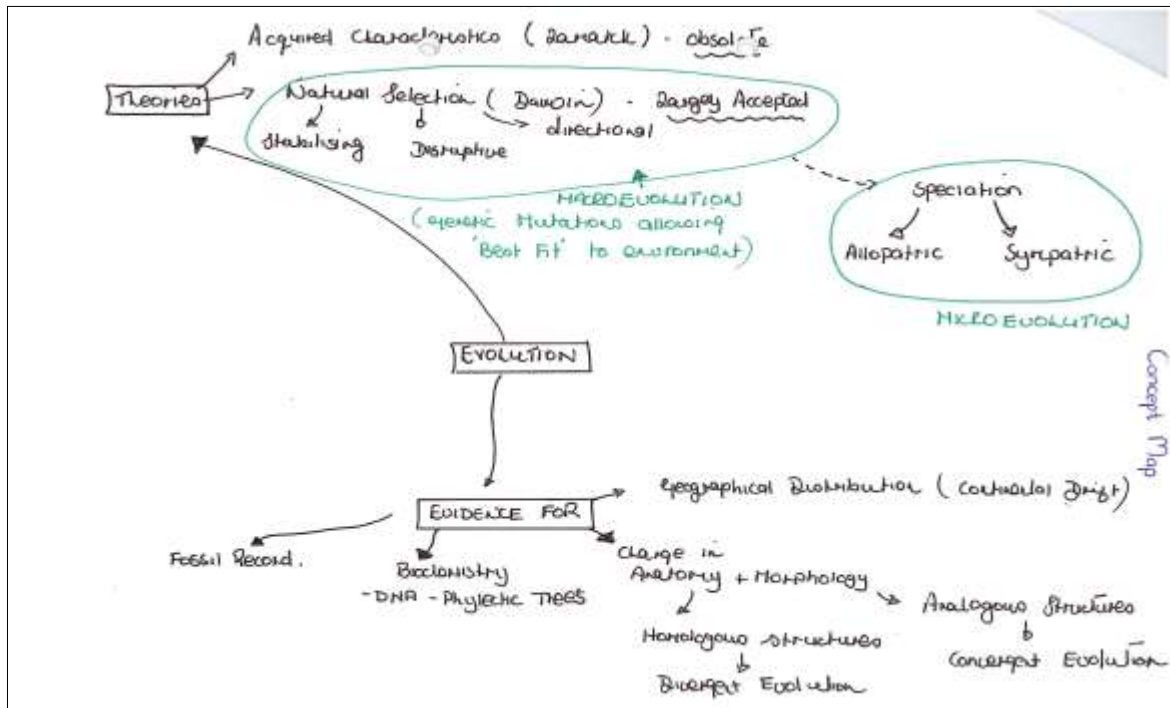 Acquired Characteristics (Lamarck) - obsolete
Theories
Natural Selection (Darwin) - Largely Accepted
Stabilising
Disruptive
directional
MACROEVOLUTION
(Genetic Mutations allowing
'Best Fit' to environment)
Speciation
Allopatric
Sympatric
MICROEVOLUTION
EVOLUTION
Concept Map
EVIDENCE FOR
Geographical Distribution (Continental Drift)
Fossil Record.
Biochemistry
-DNA - Phyletic Trees
Change in
Anatomy + Morphology
Homologous structures
Divergent Evolution
Analogous Structures
Convergent Evolution